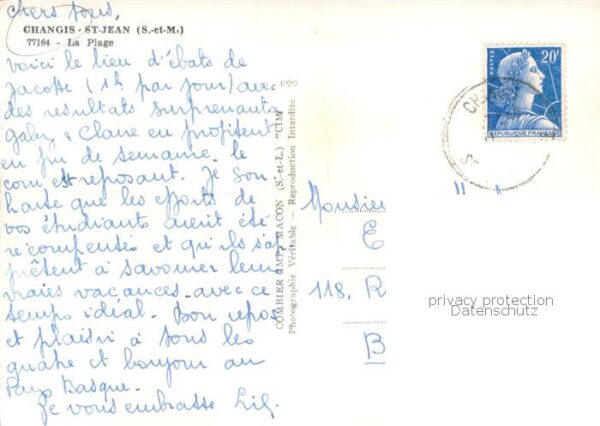 chers tous,
CHANGIS - ST-JEAN (S.-et-M.)
77164 - La Plage
voici le lieu d'ébats de
Jacotte (1h par jour) avec
des resultats surprenants
Gaby & Claire en profitent
en fin de semaine. le
coin est reposant. Je sou
haite que les efforts de
vos étudiants aient été
récompensés et qu'ils s'ap
prêtent à savourer leurs
vraies vacances. avec ce
temps idéal. Bon repos
et plaisir à tous les
quatre et bonjour au
Pays Basque.
Je vous embrasse Lil.
COMBIER IMP. MACON (S.-et-L.) "CIM"
Photographie Véritable — Reproduction Interdite
POSTES
20F
REPUBLIQUE FRANÇAISE
CHANGIS
Monsieur
E
118, R
B
privacy protection
Datenschutz